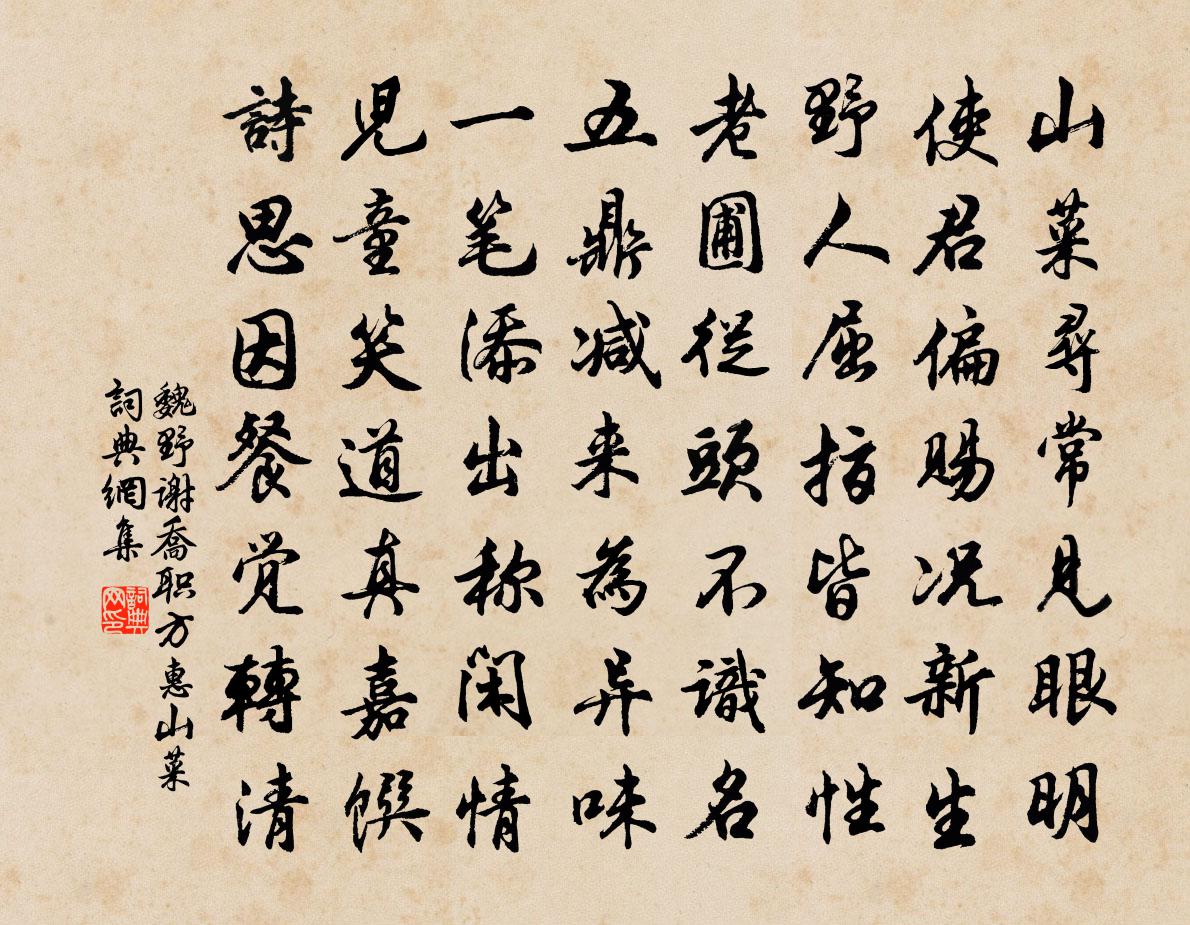 山菜尋常見眼明
使君偏賜况新生
野人屈指皆知性
老圃從頭不識名
五鼎减来為异味
一笔添出称闲情
児童笑道真嘉饌
詩思因餐觉轉清
魏野谢喬职方惠山菜
詞典網集
詞典
网印